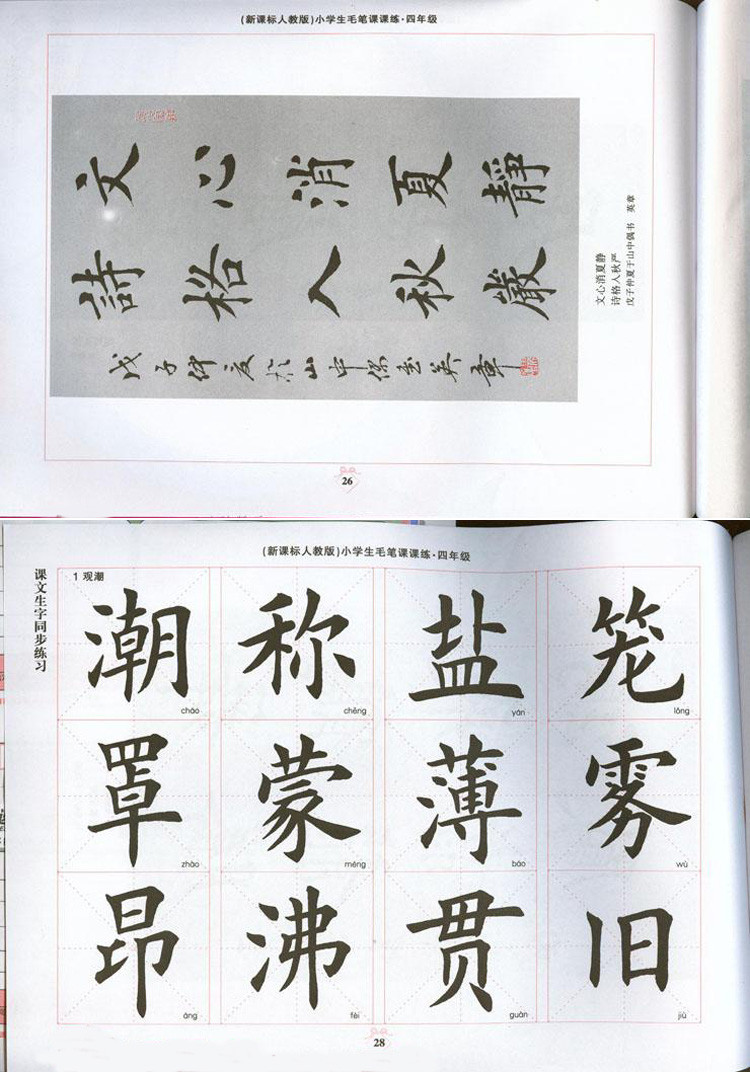 (新课标人教版)小学生毛笔课课练·四年级
文心消夏靜
詩格入秋嚴
戊子仲夏於山中偶書英章
文心消夏静
诗格人秋严
戊子仲夏于山中偶书 英章
26
(新课标人教版)小学生毛笔课课练·四年级
课文生字同步练习
1 观潮
潮 称 盐 笼
cháo chēng yán lǒng
罩 蒙 薄 雾
zhào méng báo wù
昂 沸 贯 旧
áng fèi guàn jiù
28